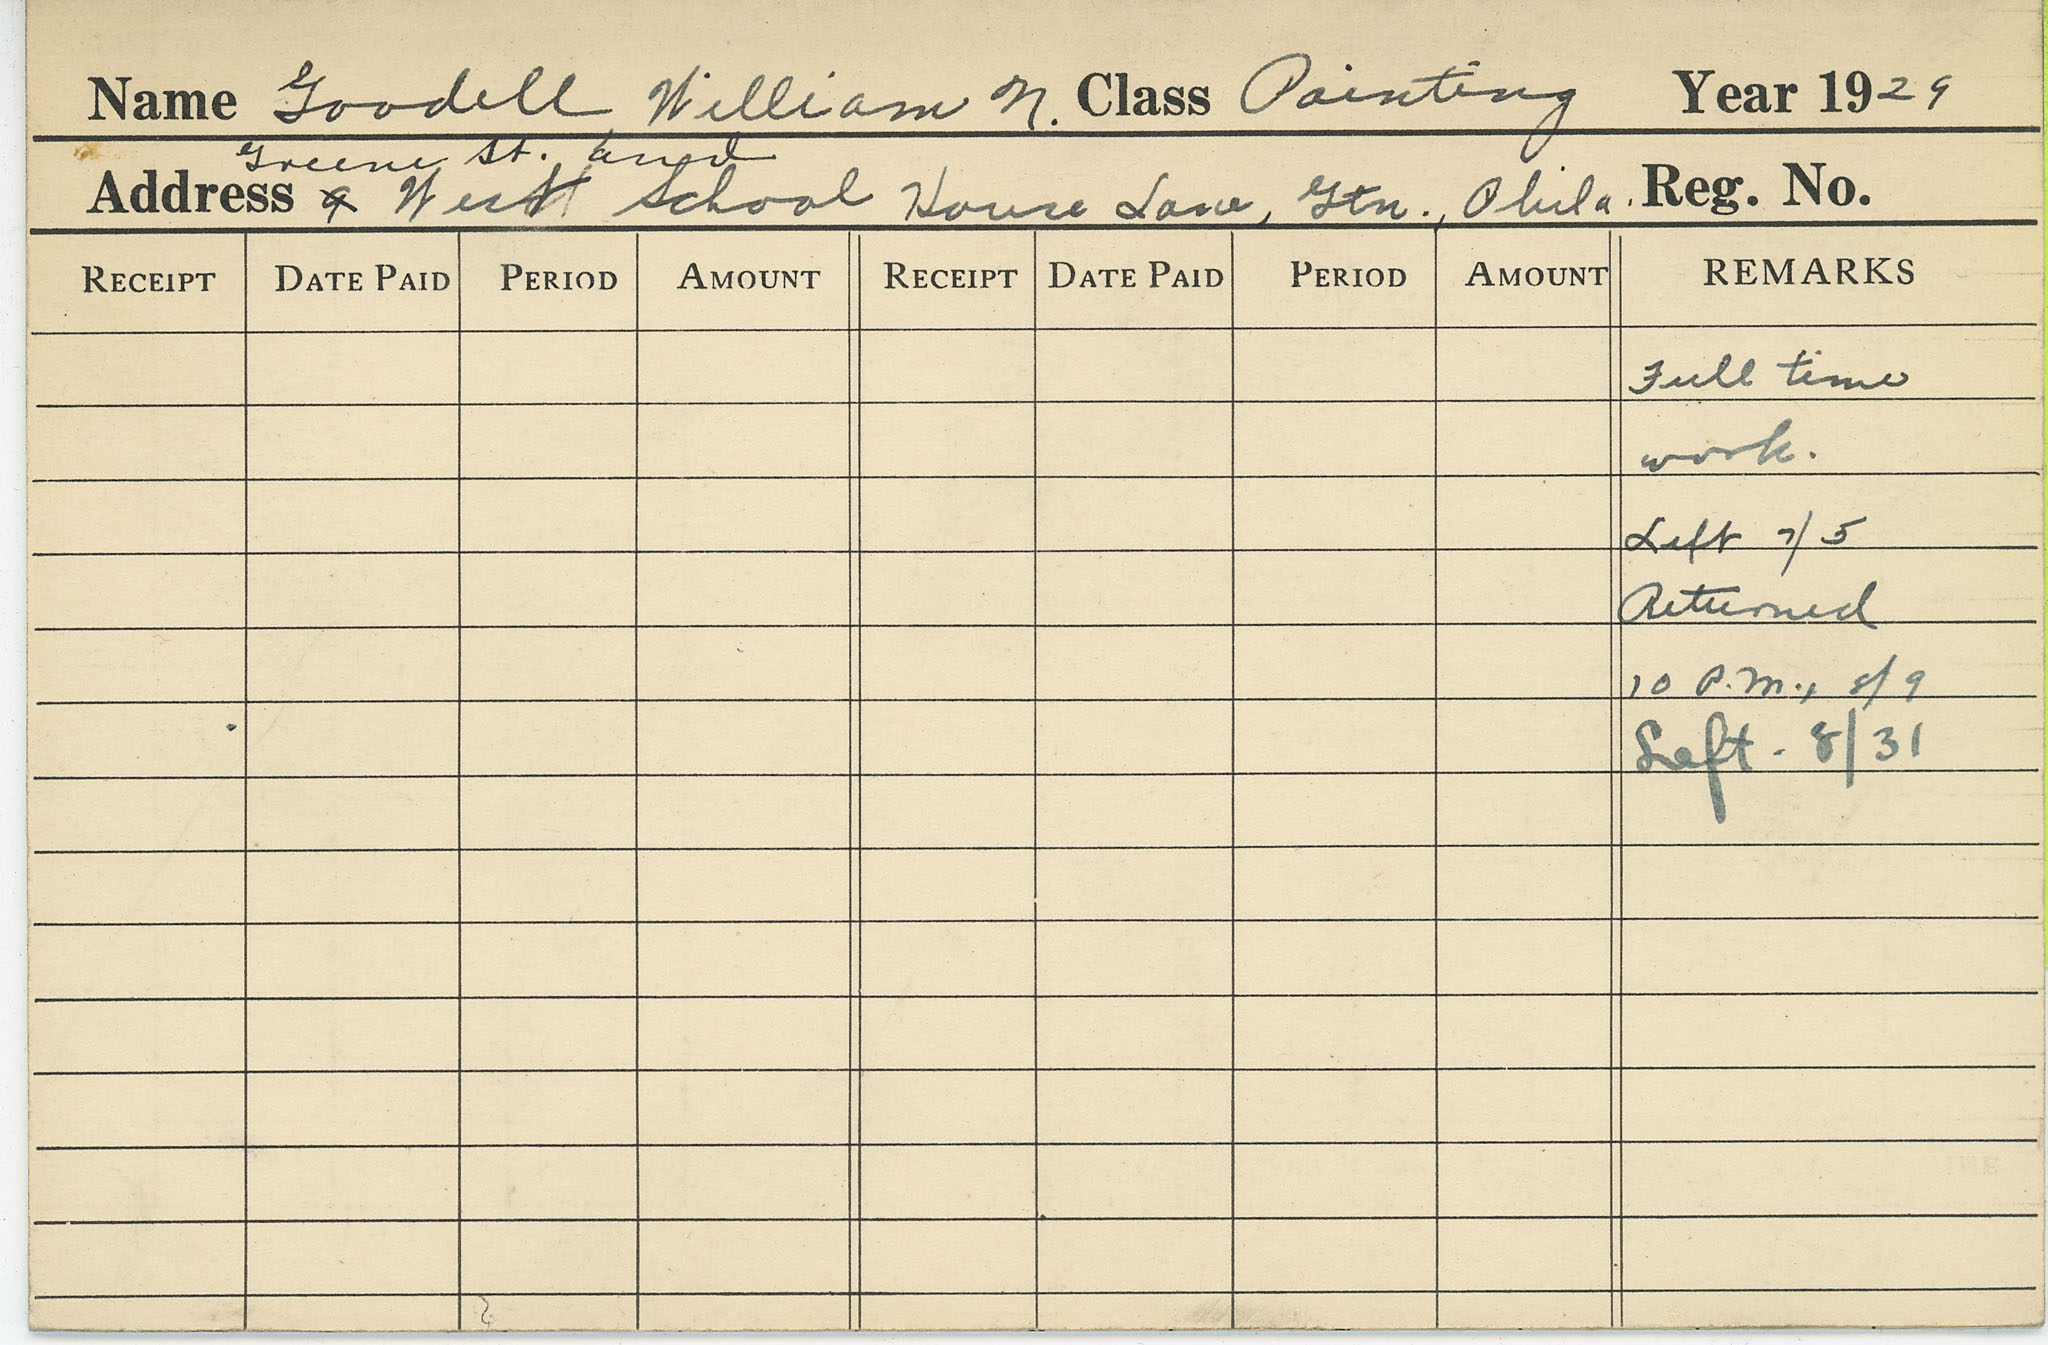 Name Goodell William N. Class Painting Year 1929
Greene St. and
Address & West School House Lane, Gtn., Phila. Reg. No.
RECEIPT DATE PAID PERIOD AMOUNT RECEIPT DATE PAID PERIOD AMOUNT REMARKS
Full time
work.
Left 7/5
Returned
10 P.M., 8/9
Left - 8/31